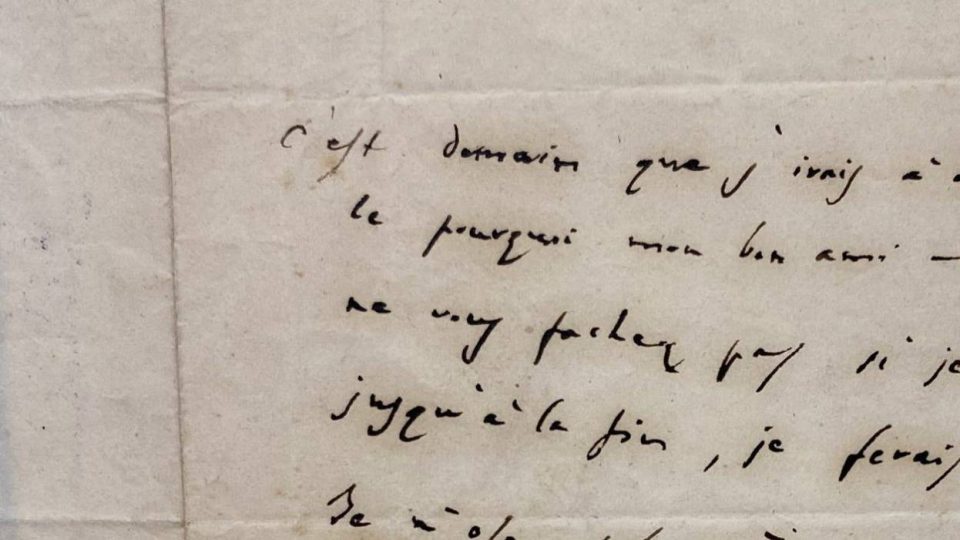 c'est demain que j'irais à
le pourquoi mon bon ami —
ne vous fachez pas si je
jusqu'à la fin, je ferais
Je n'ose